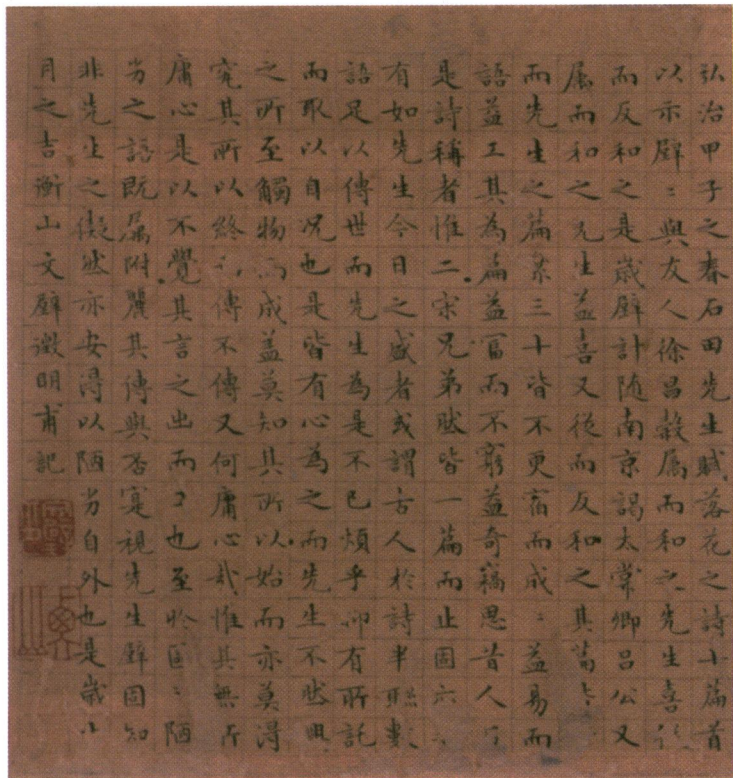 弘治甲子之春石田先生賦落花之詩十篇首
以示壁〻與友人徐昌榖属而和之先生喜從
而反和之是歲壁計随南京謁太常卿吕公又
属而和之先生益喜又從而反和之其篇
而先生之篇累三十皆不更宿而成〻益易而
語益工其為篇益富而不窮益奇竊思昔人以
是詩稱者惟二宋兄弟然皆一篇而止固
有如先生今日之盛者或謂古人於詩半聯數
語足以傳世而先生為是不已煩乎抑有所託
而取以自况也是皆有心為之而先生不然興
之所至觸物而成蓋莫知其所以始而亦莫得
究其所以終而傳不傳又何庸心哉惟其無所
庸心是以不覺其言之出而工也至於區〻陋
劣之語既属附麗其傳與否寔視先生壁固知
非先生之儗然亦安得以陋劣自外也是歲十
月之吉衡山文壁徵明甫記